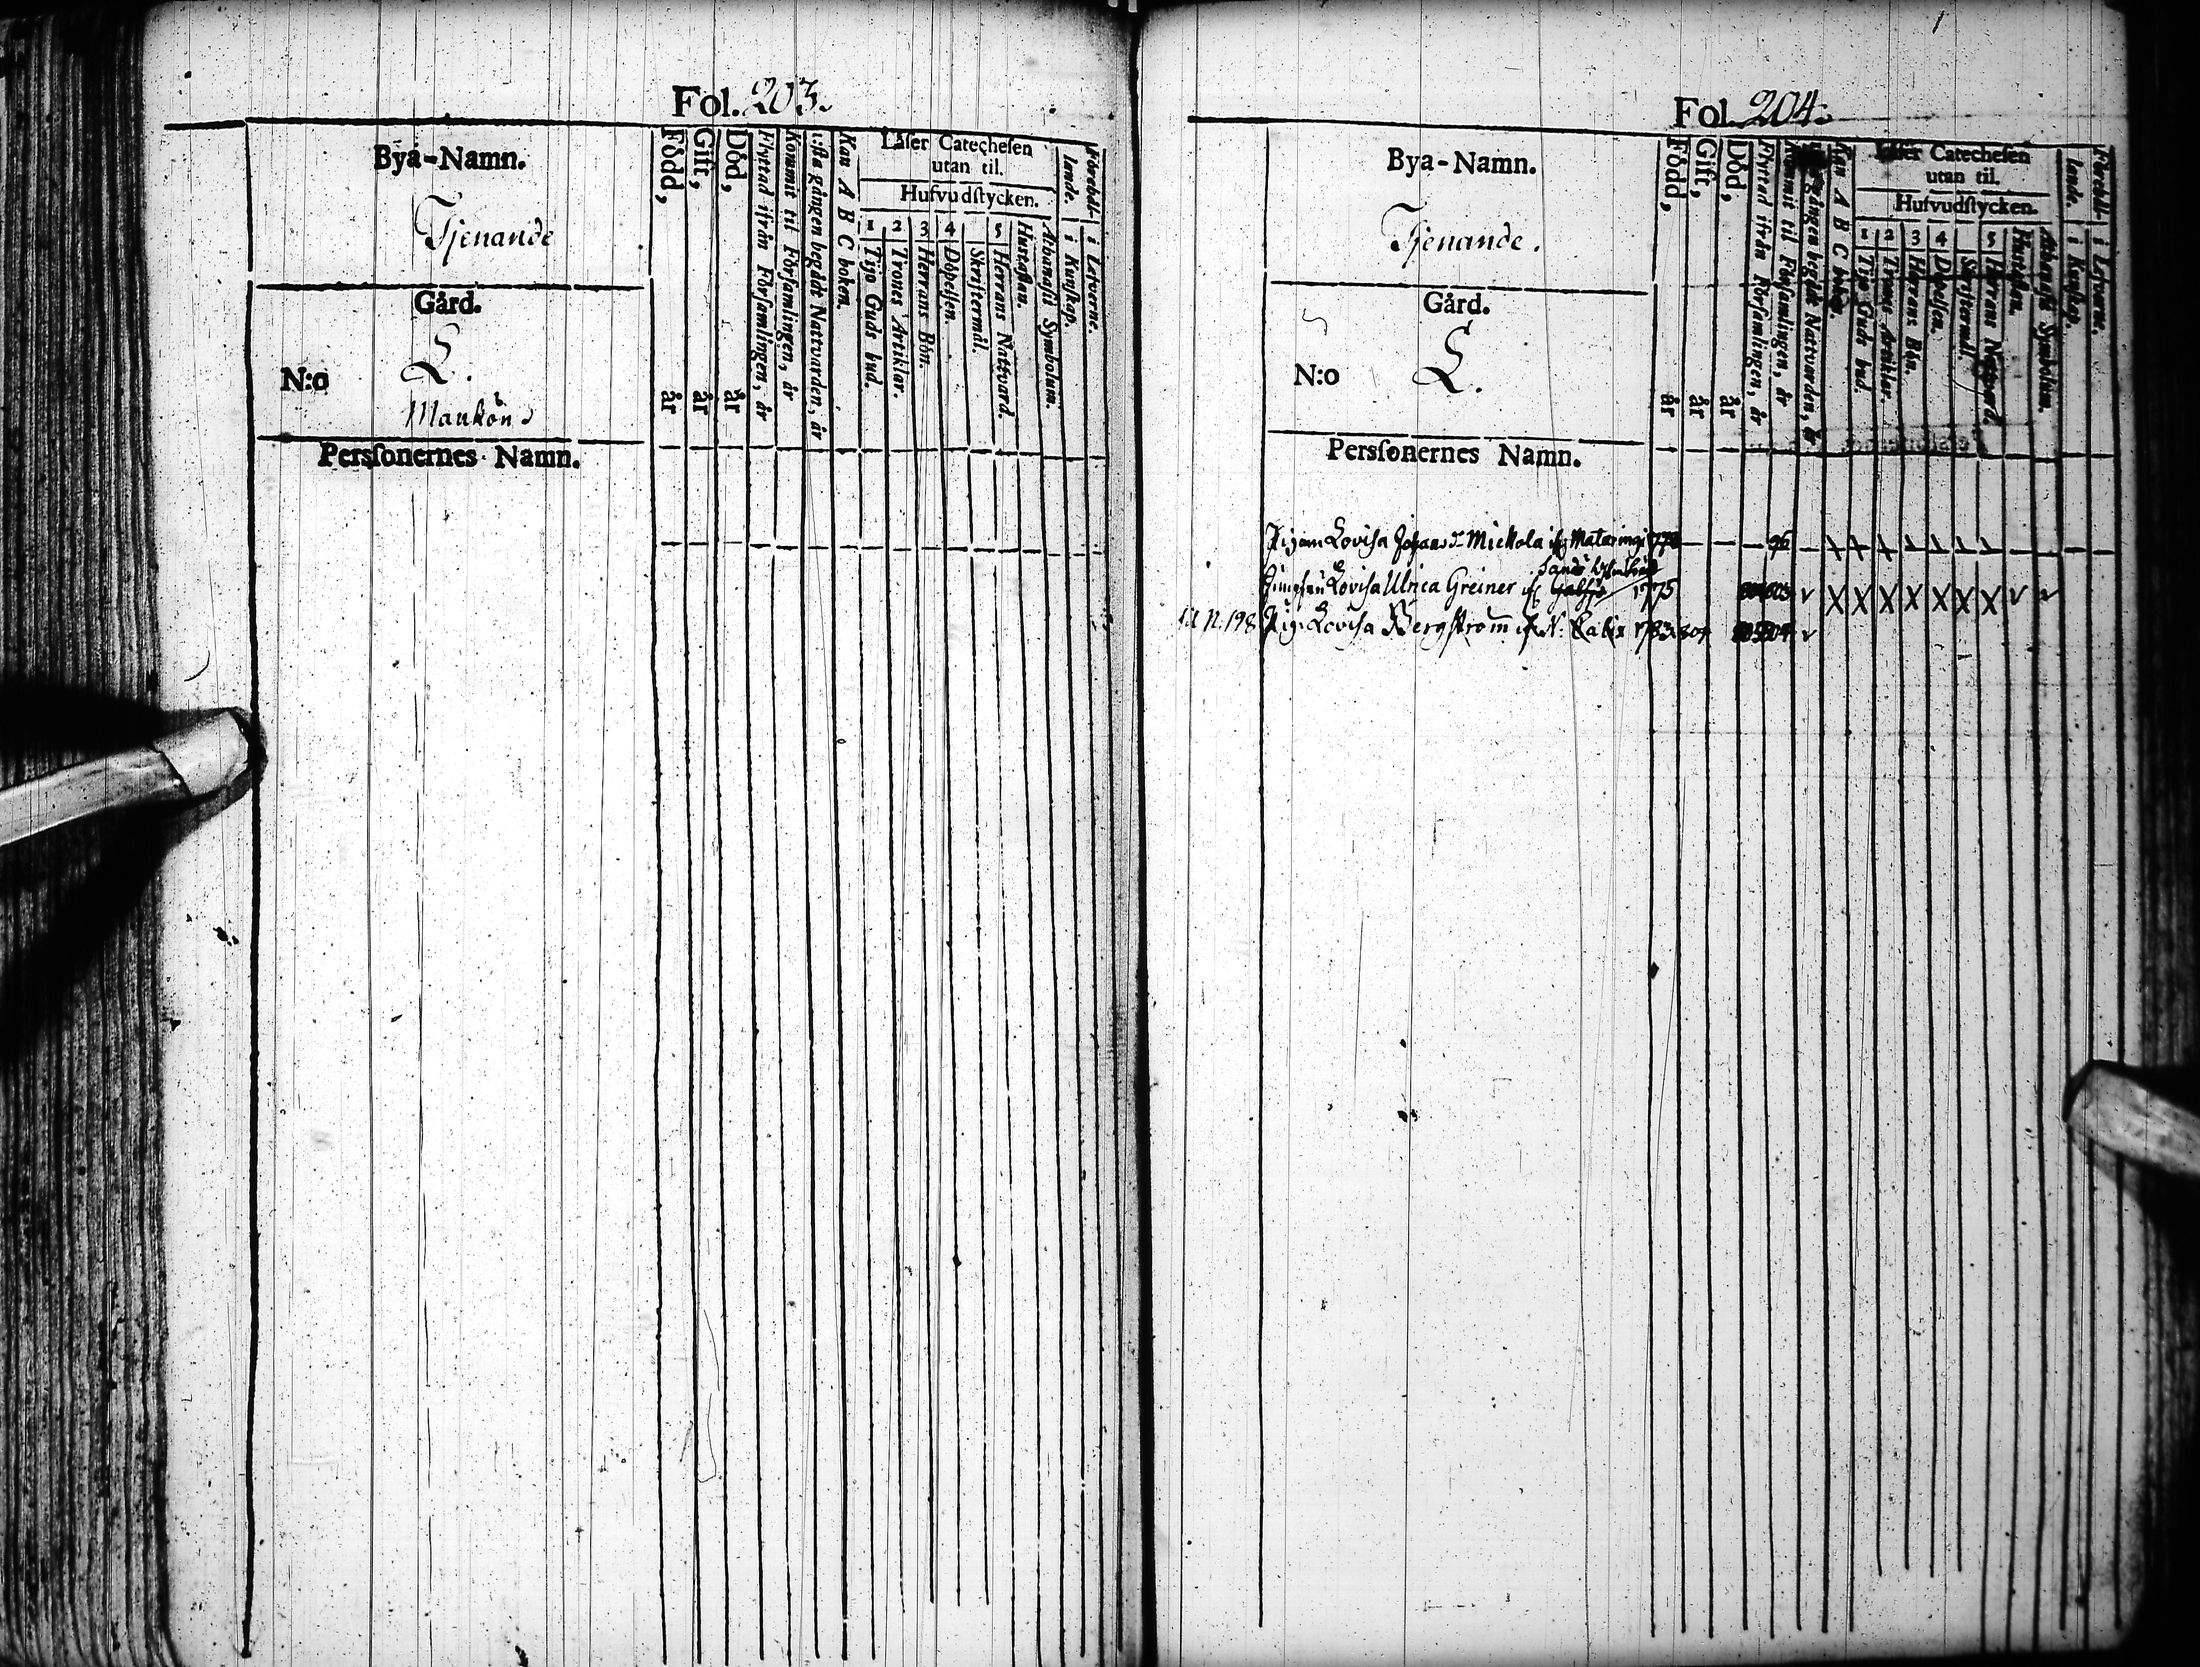 Fol. 203.
Bya-Namn.
Tjenande
Gård.
N:o L.
Mankön
Personernes Namn.
Född, år
Gift, år
Död, år
Flyttad ifrån Församlingen, år
Kommit til Församlingen, år
1:sta gången begådt Nattvarden, år
Kan A B C boken.
Läser Catechesen
utan til.
Hufvudstycken.
1 Tijo Guds bud.
2 Trones Artiklar.
3 Herrans Bön.
4 Döpelsen.
Skriftermål.
5 Herrans Nattvard.
Hustaflan.
Athanasii Symbolum.
Förehål-
lande.
i Kunskap.
i Lefverne.
Fol. 204.
Bya-Namn.
Tjenande.
Gård.
N:o L.
Personernes Namn.
Född, år
Gift, år
Död, år
Flyttad ifrån Församlingen, år
Kommit til Församlingen, år
gången begådt Nattvarden, år
Kan A B C boken.
Läser Catechesen
utan til.
Hufvudstycken.
1 Tijo Guds bud.
2 Trones Artiklar.
3 Herrans Bön.
4 Döpelsen.
Skriftermål.
5 Herrans Nattvard.
Hustaflan.
Athanasii Symbolum.
Förehål-
lande.
i Kunskap.
i Lefverne.
Pigan Lovisa Johans dr Mickola ifr Mataringi 96
Jungfru Lovisa Ulrica Greiner ifr 1775 803
N. 198 Pig. Lovisa Bergström ifr N. Calix 1783 804